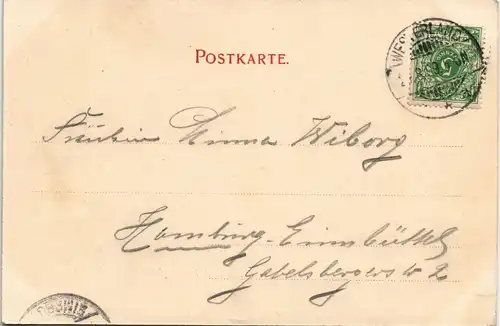 POSTKARTE.
WESTERLAND
5
Fräulein Emma Wiborg
Hamburg-Eimsbüttel
Gabelsbergerstr 2